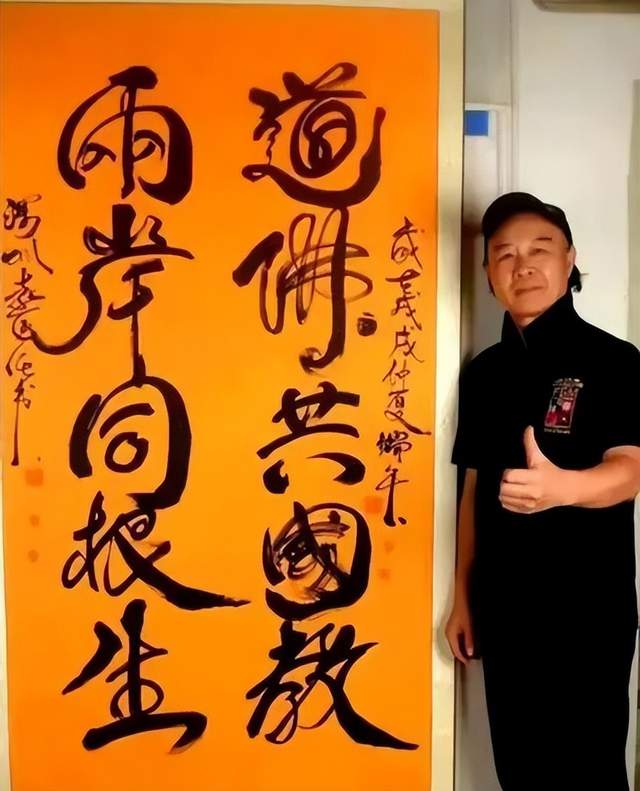 戌仲夏端午
道佛共國教
兩岸同根生
書